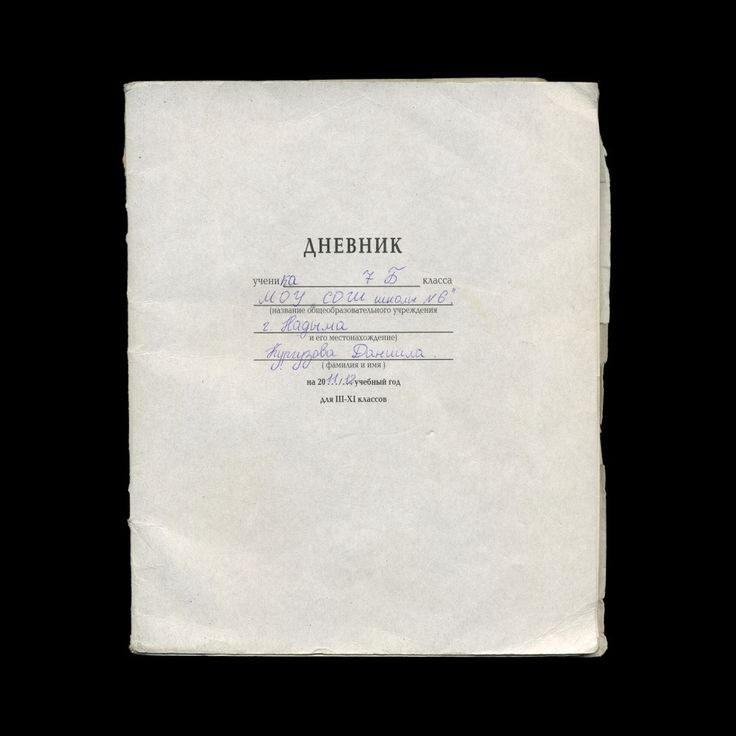 ДНЕВНИК
ученика 7 Б класса
МОУ „СОШ школы №6"
(название общеобразовательного учреждения
г Надыма
и его местонахождение)
Кургузова Даниила.
( фамилия и имя )
на 2011/12 учебный год
для III-XI классов